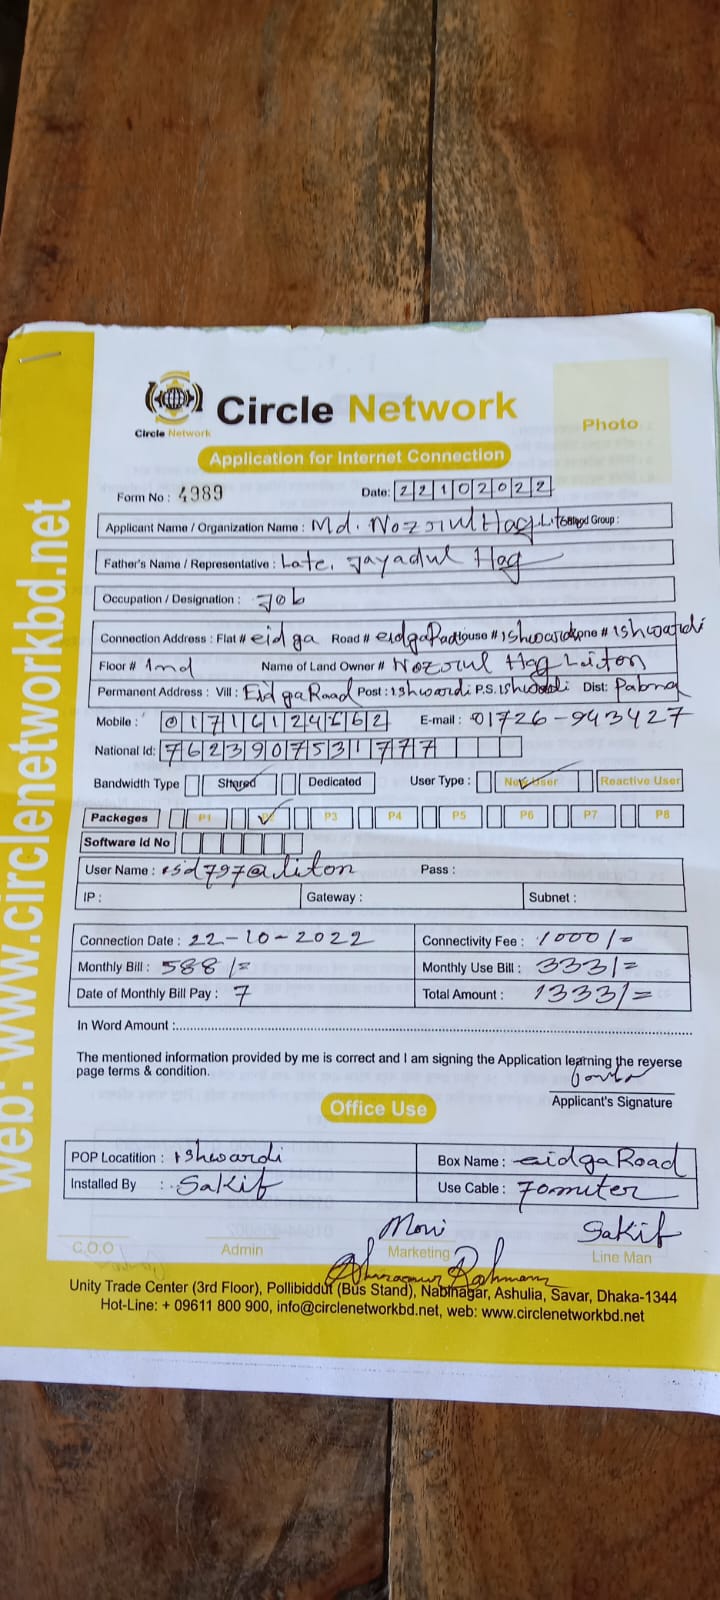 Circle Network
Circle Network
Photo
Application for Internet Connection
Form No : 4989 Date: 22102022
Applicant Name / Organization Name : Md. Nozorul Haq Liton Blood Group :
Father's Name / Representative : Late. Jayadul Haq
Occupation / Designation : Job
Connection Address : Flat # eidga Road # eidga Road House # Ishwardi Zone # Ishwardi
Floor # 1nd Name of Land Owner # Nozorul Haq Laiton
Permanent Address : Vill : Eidga Road Post : Ishwardi P.S. Ishwardi Dist: Pabna
Mobile : 01716124262 E-mail : 01726-943427
National Id: 7623907531777
Bandwidth Type Shared Dedicated User Type : New User Reactive User
Packeges P1 P2 P3 P4 P5 P6 P7 P8
Software Id No
User Name : isd797@liton Pass :
IP : Gateway : Subnet :
Connection Date : 22-10-2022 Connectivity Fee : 1000/=
Monthly Bill : 588/= Monthly Use Bill : 333/=
Date of Monthly Bill Pay : 7 Total Amount : 1333/=
In Word Amount :
The mentioned information provided by me is correct and I am signing the Application learning the reverse
page terms & condition.
Applicant's Signature
Office Use
POP Locatition : Ishwardi Box Name : eidga Road
Installed By : Sakif Use Cable : 70miter
Moni Sakif
C.O.O Admin Marketing Line Man
Unity Trade Center (3rd Floor), Pollibiddut (Bus Stand), Nabinagar, Ashulia, Savar, Dhaka-1344
Hot-Line: + 09611 800 900, info@circlenetworkbd.net, web: www.circlenetworkbd.net
web: www.circlenetworkbd.net